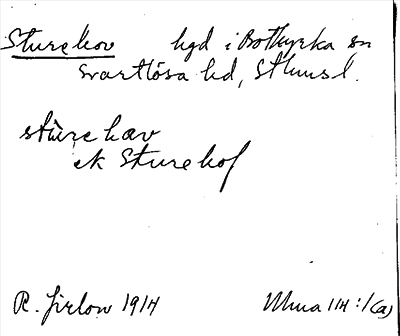 Sturehov hgd i Botkyrka sn
Svartlösa hd, Sthmsl.
stùrehæv
ek Sturehof
R. Jirlow 1914
Uhma 114:1(a)